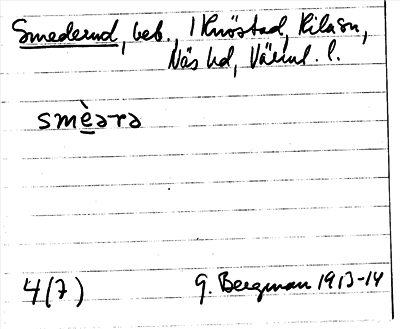 Smederud, beb., 1 Knöstad, Kila sn,
Näs hd, Värml. l.
smèəra
4(7)
G. Bergman 1913-14